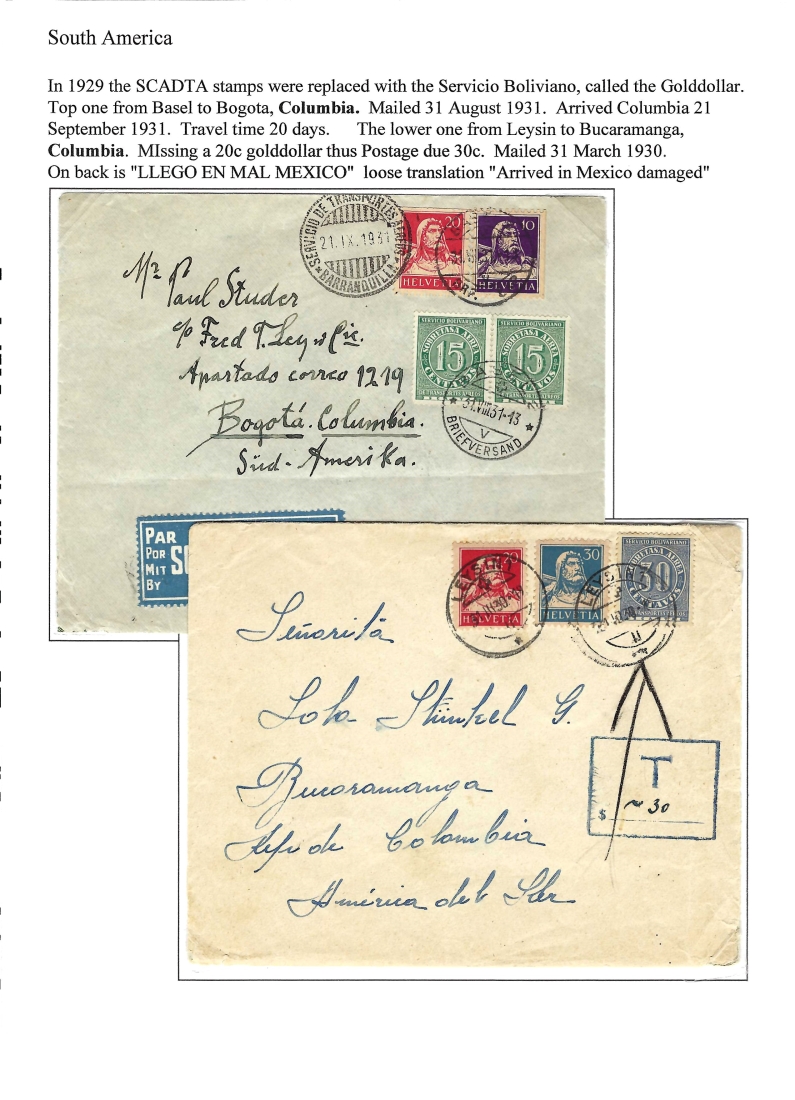 South America
In 1929 the SCADTA stamps were replaced with the Servicio Boliviano, called the Golddollar.
Top one from Basel to Bogota, Columbia. Mailed 31 August 1931. Arrived Columbia 21
September 1931. Travel time 20 days. The lower one from Leysin to Bucaramanga,
Columbia. MIssing a 20c golddollar thus Postage due 30c. Mailed 31 March 1930.
On back is "LLEGO EN MAL MEXICO" loose translation "Arrived in Mexico damaged"
SERVICIO DE TRANSPORTES
21.IX.1931
BARRANQUILLA
20
HELVETIA
10
HELVETIA
Mr Paul Studer
c/o Fred T. Ley & Cie.
Apartado correo 1219
Bogotá. Columbia.
Süd-Amerika.
SERVICIO BOLIVARIANO
SOBRETASA AEREA
15
CENTAVOS
DE TRANSPORTES AEREOS
SERVICIO BOLIVARIANO
SOBRETASA AEREA
15
CENTAVOS
DE TRANSPORTES AEREOS
31.VIII.31-13
V
BRIEFVERSAND
PAR
POR
MIT
BY
20
HELVETIA
LEYSIN
30
HELVETIA
SERVICIO BOLIVARIANO
SOBRETASA AEREA
30
CENTAVOS
TRANSPORTES AEREOS
LEYSIN
Señorita
Lola Stünkel G.
Bucaramanga
Rep. de Colombia
América del Sur
T
$ 30